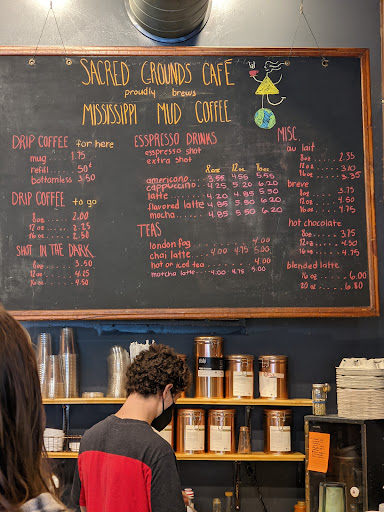 SACRED GROUNDS CAFÉ
proudly brews
MISSISSIPPI MUD COFFEE
DRIP COFFEE for here
mug 1.75
refill 50¢
bottomless 3.50
DRIP COFFEE to go
8oz 2.00
12oz 2.25
16oz 2.50
SHOT IN THE DARK
8oz 3.50
12oz 4.25
16oz 4.50
ESSPRESO DRINKS
esspresso shot
extra shot
8oz 12oz 16oz
americano 3.55 4.55 5.55
cappuccino 4.25 5.20 6.20
latte 4.20 4.85 5.20
flavored latte 4.85 5.50 6.20
mocha 4.85 5.50 6.20
TEAS
london fog 4.00
chai latte 4.00 4.75 5.00
hot or iced tea 4.00
matcha latte 4.00 4.75 5.00
MISC.
au lait
8oz 2.55
12oz 3.10
16oz 3.35
breve
8oz 3.75
12oz 4.50
16oz 4.75
hot chocolate
8oz 3.75
12oz 4.50
16oz 5.00
blended latte
16oz 6.00
20oz 6.80